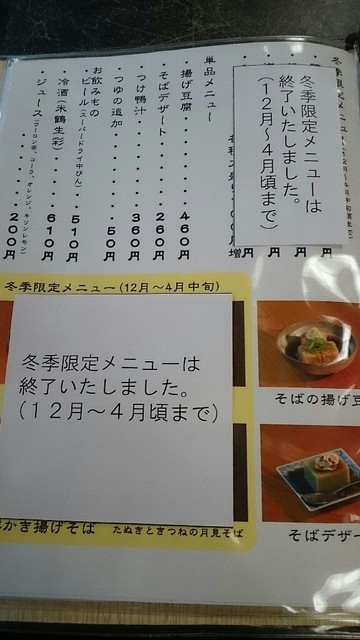 冬季限定メニュー(12月~4月中旬まで)
冬季限定メニューは
終了いたしました。
(12月~4月頃まで)
単品メニュー
・揚げ豆腐・・・・・・460円
・そばデザート・・・・260円
・つけ鴨汁・・・・・・360円
・つゆの追加・・・・・50円
お飲みもの
・ビール(スーパードライ中びん)・510円
・冷酒(米鶴生彩)・・610円
・ジュース(ウーロン茶、コーラ、オレンジ、キリンレモン)・200円
冬季限定メニュー(12月~4月中旬)
冬季限定メニューは
終了いたしました。
(12月~4月頃まで)
かき揚げそば
たぬきときつねの月見そば
そばの揚げ豆
そばデザー